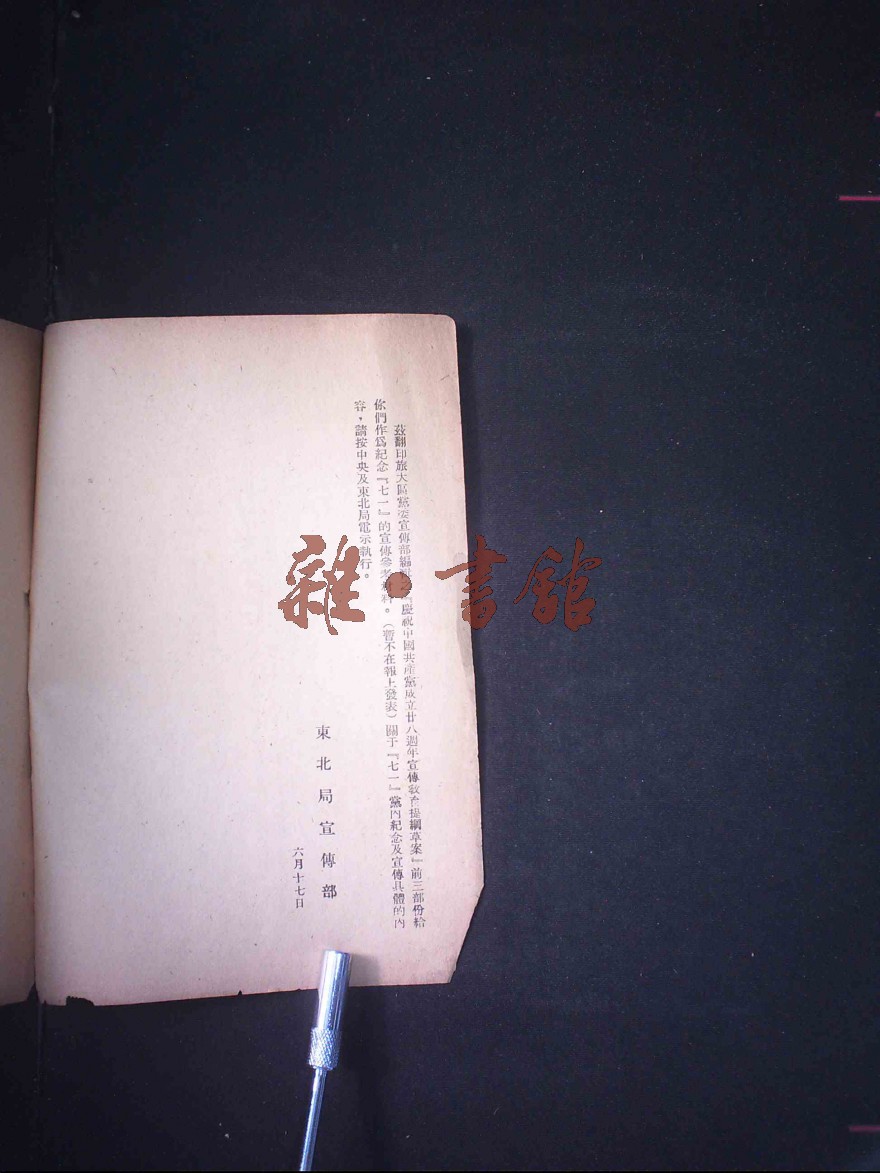 茲翻印旅大區黨委宣傳部編『慶祝中國共產黨成立廿八週年宣傳敎育提綱草案』前三部份給
你們作爲紀念『七一』的宣傳參考料。（暫不在報上發表）關于『七一』黨內紀念及宣傳具體的內
容，請按中央及東北局電示執行。
東北局宣傳部
六月十七日
雜·書館